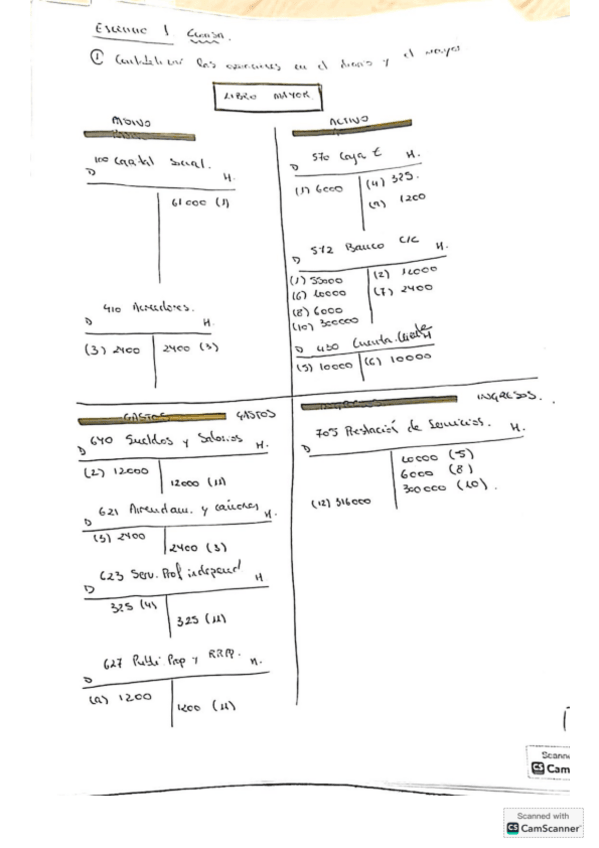 1
① las en el y el mayor
LIBRO MAYOR
ACTIVO
100 Capital Social.
D H.
61000 (1)
570 Caja € H.
D
(1) 6000 (4) 325.
1200
572 Banco C/C H.
D
(1) 55000 (2) 12000
(6) 10000 (7) 2400
(8) 6000
(10) 300000
410 Acreedores.
D H.
(3) 2400 2400
D 430
(5) 10000 (6) 10000
GASTOS GASTOS
640 Sueldos y Salarios H.
D
(2) 12000
12000 (11)
621 Arrendam. y cánones H.
D
2400
2400
623 Serv. Prof independ H
D
325 (4)
325 (11)
627 Publi. Prop y RRPP. H.
D
1200
1200 (11)
INGRESOS.
705 Prestación de Servicios. H.
D
10000 (5)
6000 (8)
300000 (10).
(12) 316000
Scann
CS Cam
Scanned with
CS CamScanner